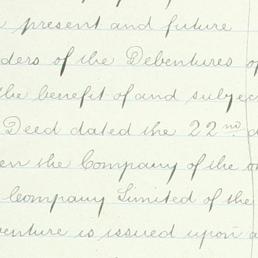 present and future
ders of the Debentures of
the benefit of and subjec
Deed dated the 22nd d
en the Company of the o
Company Limited of the
enture is issued upon a